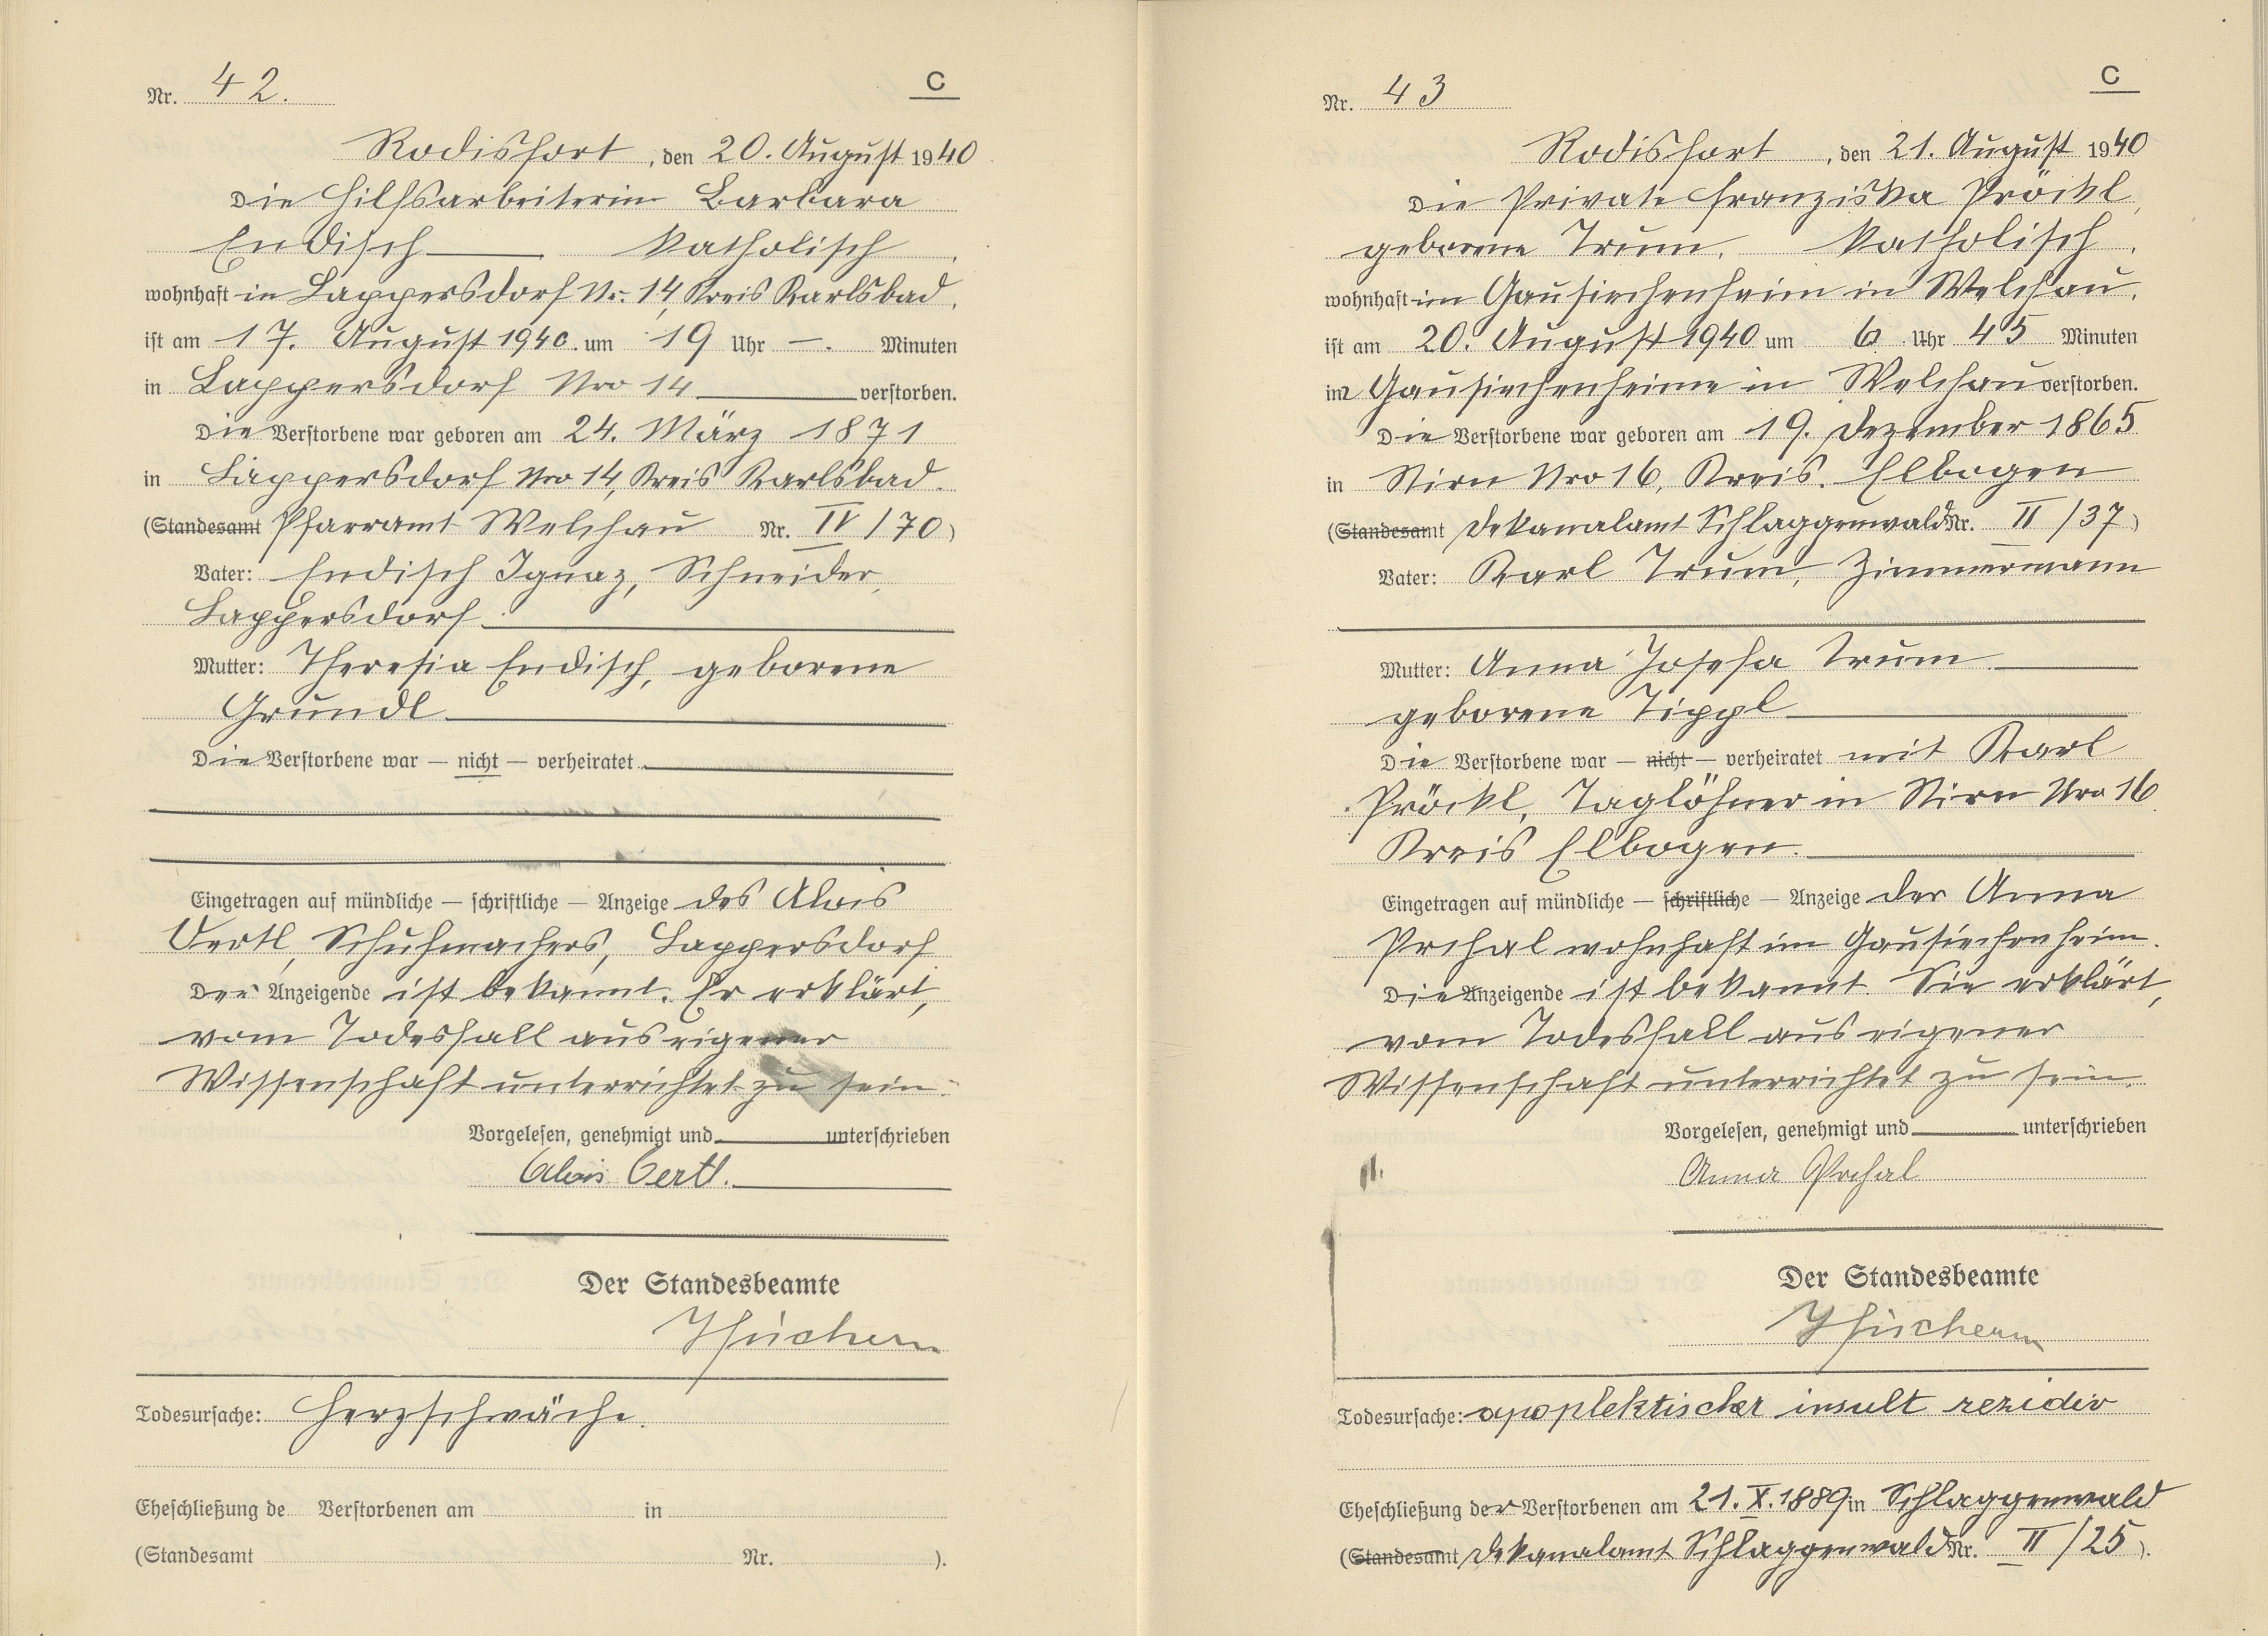 Nr. 42.
C
Rodisfort, den 20. August 1940
Die Hilfsarbeiterin Barbara
Endisch katholisch,
wohnhaft in Lappersdorf Nr. 14, Kreis Karlsbad,
ist am 17. August 1940 um 19 Uhr —. Minuten
in Lappersdorf Nro 14 verstorben.
Die Verstorbene war geboren am 24. März 1871
in Lappersdorf Nro 14, Kreis Karlsbad.
(Standesamt Pfarramt Welchau Nr. IV/70)
Vater: Endisch Ignaz, Schneider,
Lappersdorf.
Mutter: Theresia Endisch, geborene
Grundl
Die Verstorbene war — nicht — verheiratet
Eingetragen auf mündliche — schriftliche — Anzeige des Alois
Oertl, Schuhmachers, Lappersdorf
Der Anzeigende ist bekannt. Er erklärt,
vom Todesfall aus eigener
Wissenschaft unterrichtet zu sein.
Vorgelesen, genehmigt und unterschrieben
Alois Oertl.
Der Standesbeamte
Todesursache: Herzschwäche.
Eheschließung de Verstorbenen am in
(Standesamt Nr. ).
Nr. 43
C
Rodisfort, den 21. August 1940
Die Private Franziska Pröckl,
geborene Trum, katholisch,
wohnhaft im Gausiechenheim in Welchau,
ist am 20. August 1940 um 6 Uhr 45 Minuten
im Gausiechenheime in Welchau verstorben.
Die Verstorbene war geboren am 19. Dezember 1865
in Stirn Nro 16, Kreis Elbogen
(Standesamt Dekanalamt Schlaggenwald Nr. II/37)
Vater: Karl Trum, Zimmermann
Mutter: Anna Josefa Trum
geborene Tippl
Die Verstorbene war — nicht — verheiratet mit Karl
Pröckl, Taglöhner in Stirn Nro 16
Kreis Elbogen.
Eingetragen auf mündliche — schriftliche — Anzeige der Anna
Prchal wohnhaft im Gausiechenheim.
Die Anzeigende ist bekannt. Sie erklärt,
vom Todesfall aus eigener
Wissenschaft unterrichtet zu sein.
Vorgelesen, genehmigt und unterschrieben
Anna Prchal
Der Standesbeamte
Todesursache: apoplektischer insult rezidiv
Eheschließung der Verstorbenen am 21. X. 1889 in Schlaggenwald
(Standesamt Dekanalamt Schlaggenwald Nr. II/25).